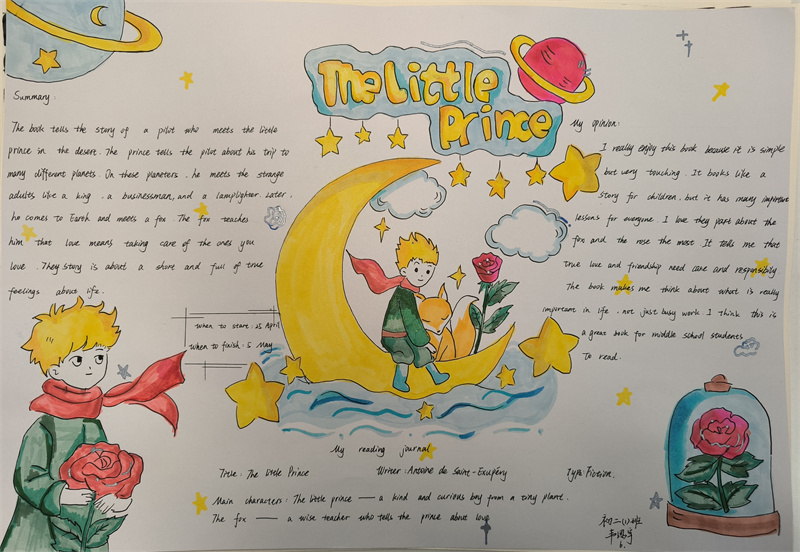 The Little
Prince
Summary:
The book tells the story of a pilot who meets the little
prince in the desert. The prince tells the pilot about his trip to
many different planets. On these planeters, he meets the strange
adults like a king, a businessman, and a lamplighter. Later,
he comes to Earth and meets a fox. The fox teaches
him that love means taking care of the ones you
love. They story is about a short and full of true
feelings about life.
when to start: 25 April
when to finish: 5 May
My opinion:
I really enjoy this book because it is simple
but very touching. It books like a
story for children, but it has many important
lessons for everyone. I love they part about the
fox and the rose the most. It tells me that
true love and friendship need care and responsibly.
The book makes me think about what is really
important in life, not just busy work. I think this is
a great book for middle school students
to read.
My reading journal
Title: The Little Prince Writer: Antoine de Saint-Exupéry Type: Fiction.
Main characters: The little prince — a kind and curious boy from a tiny plant.
The fox — a wise teacher who tells the prince about love
初二(1)班
6.